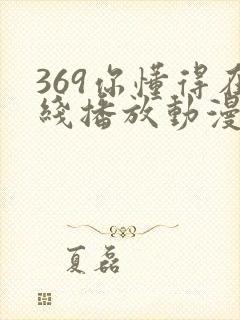 369你懂得在
綫播放動漫
夏磊